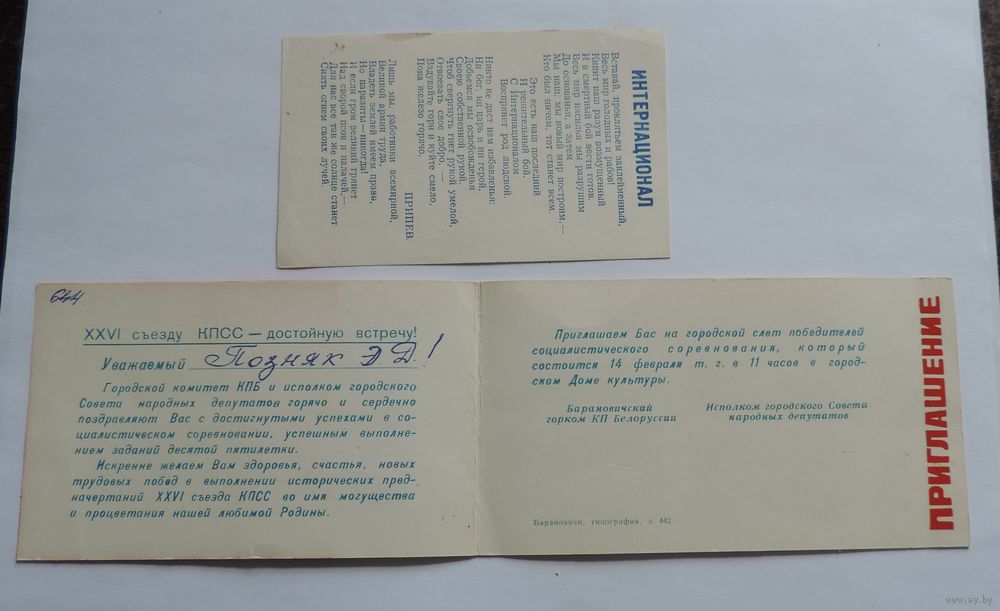 ИНТЕРНАЦИОНАЛ
Вставай, проклятьем заклейменный,
Весь мир голодных и рабов!
Кипит наш разум возмущенный
И в смертный бой вести готов.
Весь мир насилья мы разрушим
До основанья, а затем
Мы наш, мы новый мир построим,—
Кто был ничем, тот станет всем.
Это есть наш последний
И решительный бой.
С Интернационалом
Воспрянет род людской.
Никто не даст нам избавленья:
Ни бог, ни царь и ни герой,
Добьемся мы освобожденья
Своею собственной рукой.
Чтоб свергнуть гнет рукой умелой,
Отвоевать свое добро,—
Вздувайте горн и куйте смело,
Пока железо горячо.
ПРИПЕВ.
Лишь мы, работники всемирной,
Великой армии труда,
Владеть землей имеем право,
Но паразиты—никогда!
И если гром великий грянет
Над сворой псов и палачей,—
Для нас все так же солнце станет
Сиять огнем своих лучей.
644
XXVI съезду КПСС — достойную встречу!
Уважаемый Позняк Э Д!
Городской комитет КПБ и исполком городского
Совета народных депутатов горячо и сердечно
поздравляют Вас с достигнутыми успехами в со-
циалистическом соревновании, успешным выполне-
нием заданий десятой пятилетки.
Искренне желаем Вам здоровья, счастья, новых
трудовых побед в выполнении исторических пред-
начертаний XXVI съезда КПСС во имя могущества
и процветания нашей любимой Родины.
Приглашаем Вас на городской слет победителей
социалистического соревнования, который
состоится 14 февраля т. г. в 11 часов в город-
ском Доме культуры.
Барановичский
горком КП Белоруссии
Исполком городского Совета
народных депутатов
Барановичи, типография, з. 442
ПРИГЛАШЕНИЕ
www.ay.by